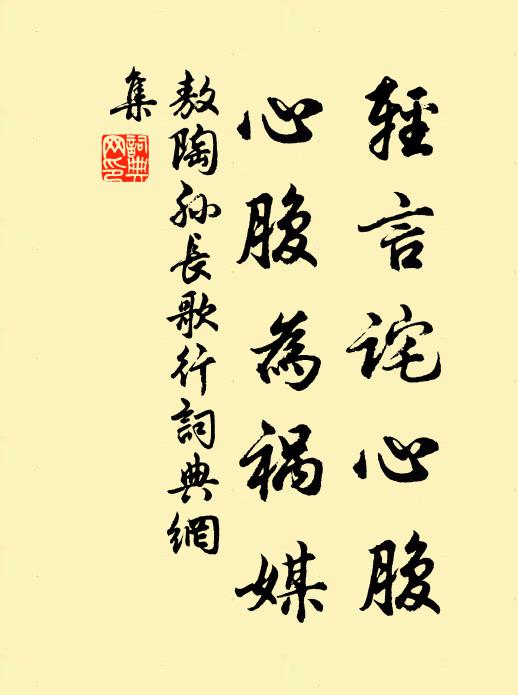 輕言詫心腹
心腹為禍媒
敖陶孫長歌行詞典網
集
詞典
网印